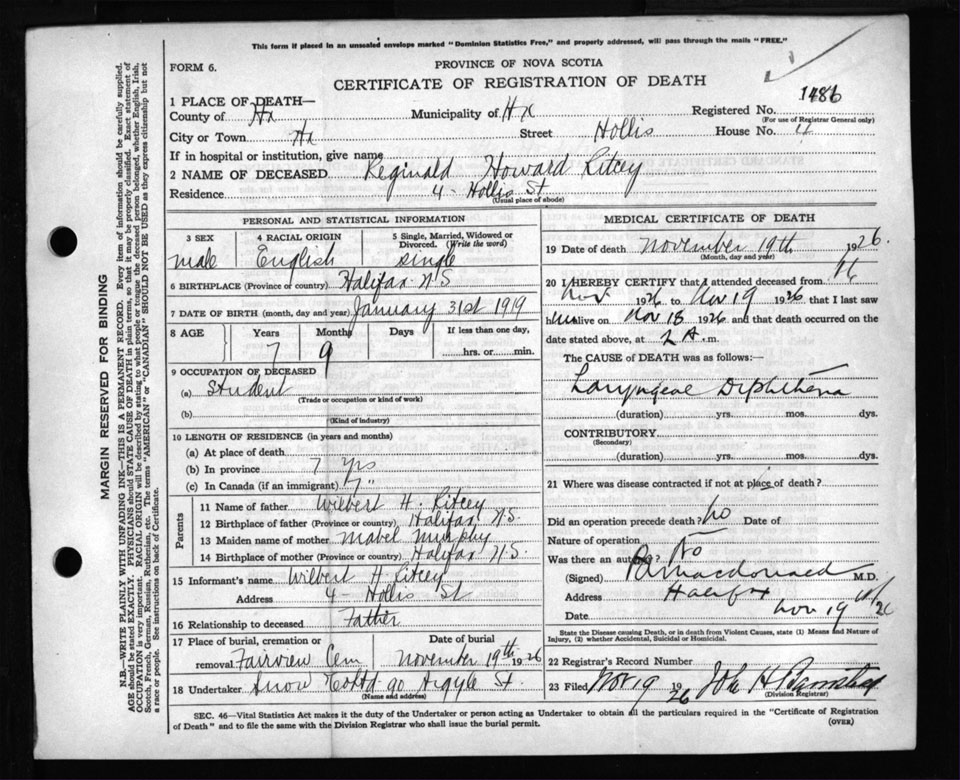 This form if placed in an unsealed envelope marked "Dominion Statistics Free," and properly addressed, will pass through the mails "FREE."
FORM 6.
PROVINCE OF NOVA SCOTIA
CERTIFICATE OF REGISTRATION OF DEATH
1486
1 PLACE OF DEATH—
County of Hx Municipality of Hx Registered No.
(For use of Registrar General only)
City or Town Hx Street Hollis House No. 4
If in hospital or institution, give name
2 NAME OF DECEASED Reginald Howard Ritcey
Residence 4 - Hollis St
(Usual place of abode)
MARGIN RESERVED FOR BINDING
N.B.—WRITE PLAINLY WITH UNFADING INK—THIS IS A PERMANENT RECORD. Every item of information should be carefully supplied.
AGE should be stated EXACTLY. PHYSICIANS should STATE CAUSE OF DEATH in plain terms, so that it may be properly classified. Exact statement of
OCCUPATION is very important. RACIAL ORIGIN will be described by stating to what people or tongue the deceased person belonged, whether English, Irish,
Scotch, French, German, Russian, Ruthenian, etc. The terms "AMERICAN" or "CANADIAN" SHOULD NOT BE USED as they express citizenship but not
a race or people. See instructions on back of Certificate.
PERSONAL AND STATISTICAL INFORMATION
3 SEX 4 RACIAL ORIGIN 5 Single, Married, Widowed or
Divorced. (Write the word)
male English single
6 BIRTHPLACE (Province or country) Halifax N S
7 DATE OF BIRTH (month, day and year) January 31st 1919
8 AGE Years Months Days If less than one day,
7 9 hrs. or min.
9 OCCUPATION OF DECEASED
(a) Student
(Trade or occupation or kind of work)
(b)
(Kind of industry)
10 LENGTH OF RESIDENCE (in years and months)
(a) At place of death
(b) In province 7 yrs
(c) In Canada (if an immigrant) 7 "
Parents
11 Name of father Wilbert H. Ritcey
12 Birthplace of father (Province or country) Halifax N.S.
13 Maiden name of mother Mabel Murphy
14 Birthplace of mother (Province or country) Halifax N.S.
15 Informant's name Wilbert H Ritcey
Address 4 - Hollis St
16 Relationship to deceased Father
17 Place of burial, cremation or Date of burial
removal Fairview Cem November 19th 1926
18 Undertaker Snow & Co Ltd 90 Argyle St.
(Name and address)
MEDICAL CERTIFICATE OF DEATH
19 Date of death November 19th 1926.
(Month, day and year)
20 I HEREBY CERTIFY that I attended deceased from
Nov 1926 to Nov 19 1926 that I last saw
him alive on Nov 18 1926 and that death occurred on the
date stated above, at 2 A.m.
The CAUSE OF DEATH was as follows:
Laryngeal Diphtheria
(duration) yrs. mos. dys.
CONTRIBUTORY
(Secondary)
(duration) yrs. mos. dys.
21 Where was disease contracted if not at place of death?
Did an operation precede death? No Date of
Nature of operation
Was there an autopsy? No
(Signed) Macdonald M.D.
Address Halifax
Date Nov 19 26
State the Disease causing Death, or in death from Violent Causes, state (1) Means and Nature of
Injury, (2) whether Accidental, Suicidal or Homicidal.
22 Registrar's Record Number
23 Filed Nov 19 1926 Jno H Barnstead
(Division Registrar)
SEC. 46—Vital Statistics Act makes it the duty of the Undertaker or person acting as Undertaker to obtain all the particulars required in the "Certificate of Registration
of Death" and to file the same with the Division Registrar who shall issue the burial permit.
(OVER)